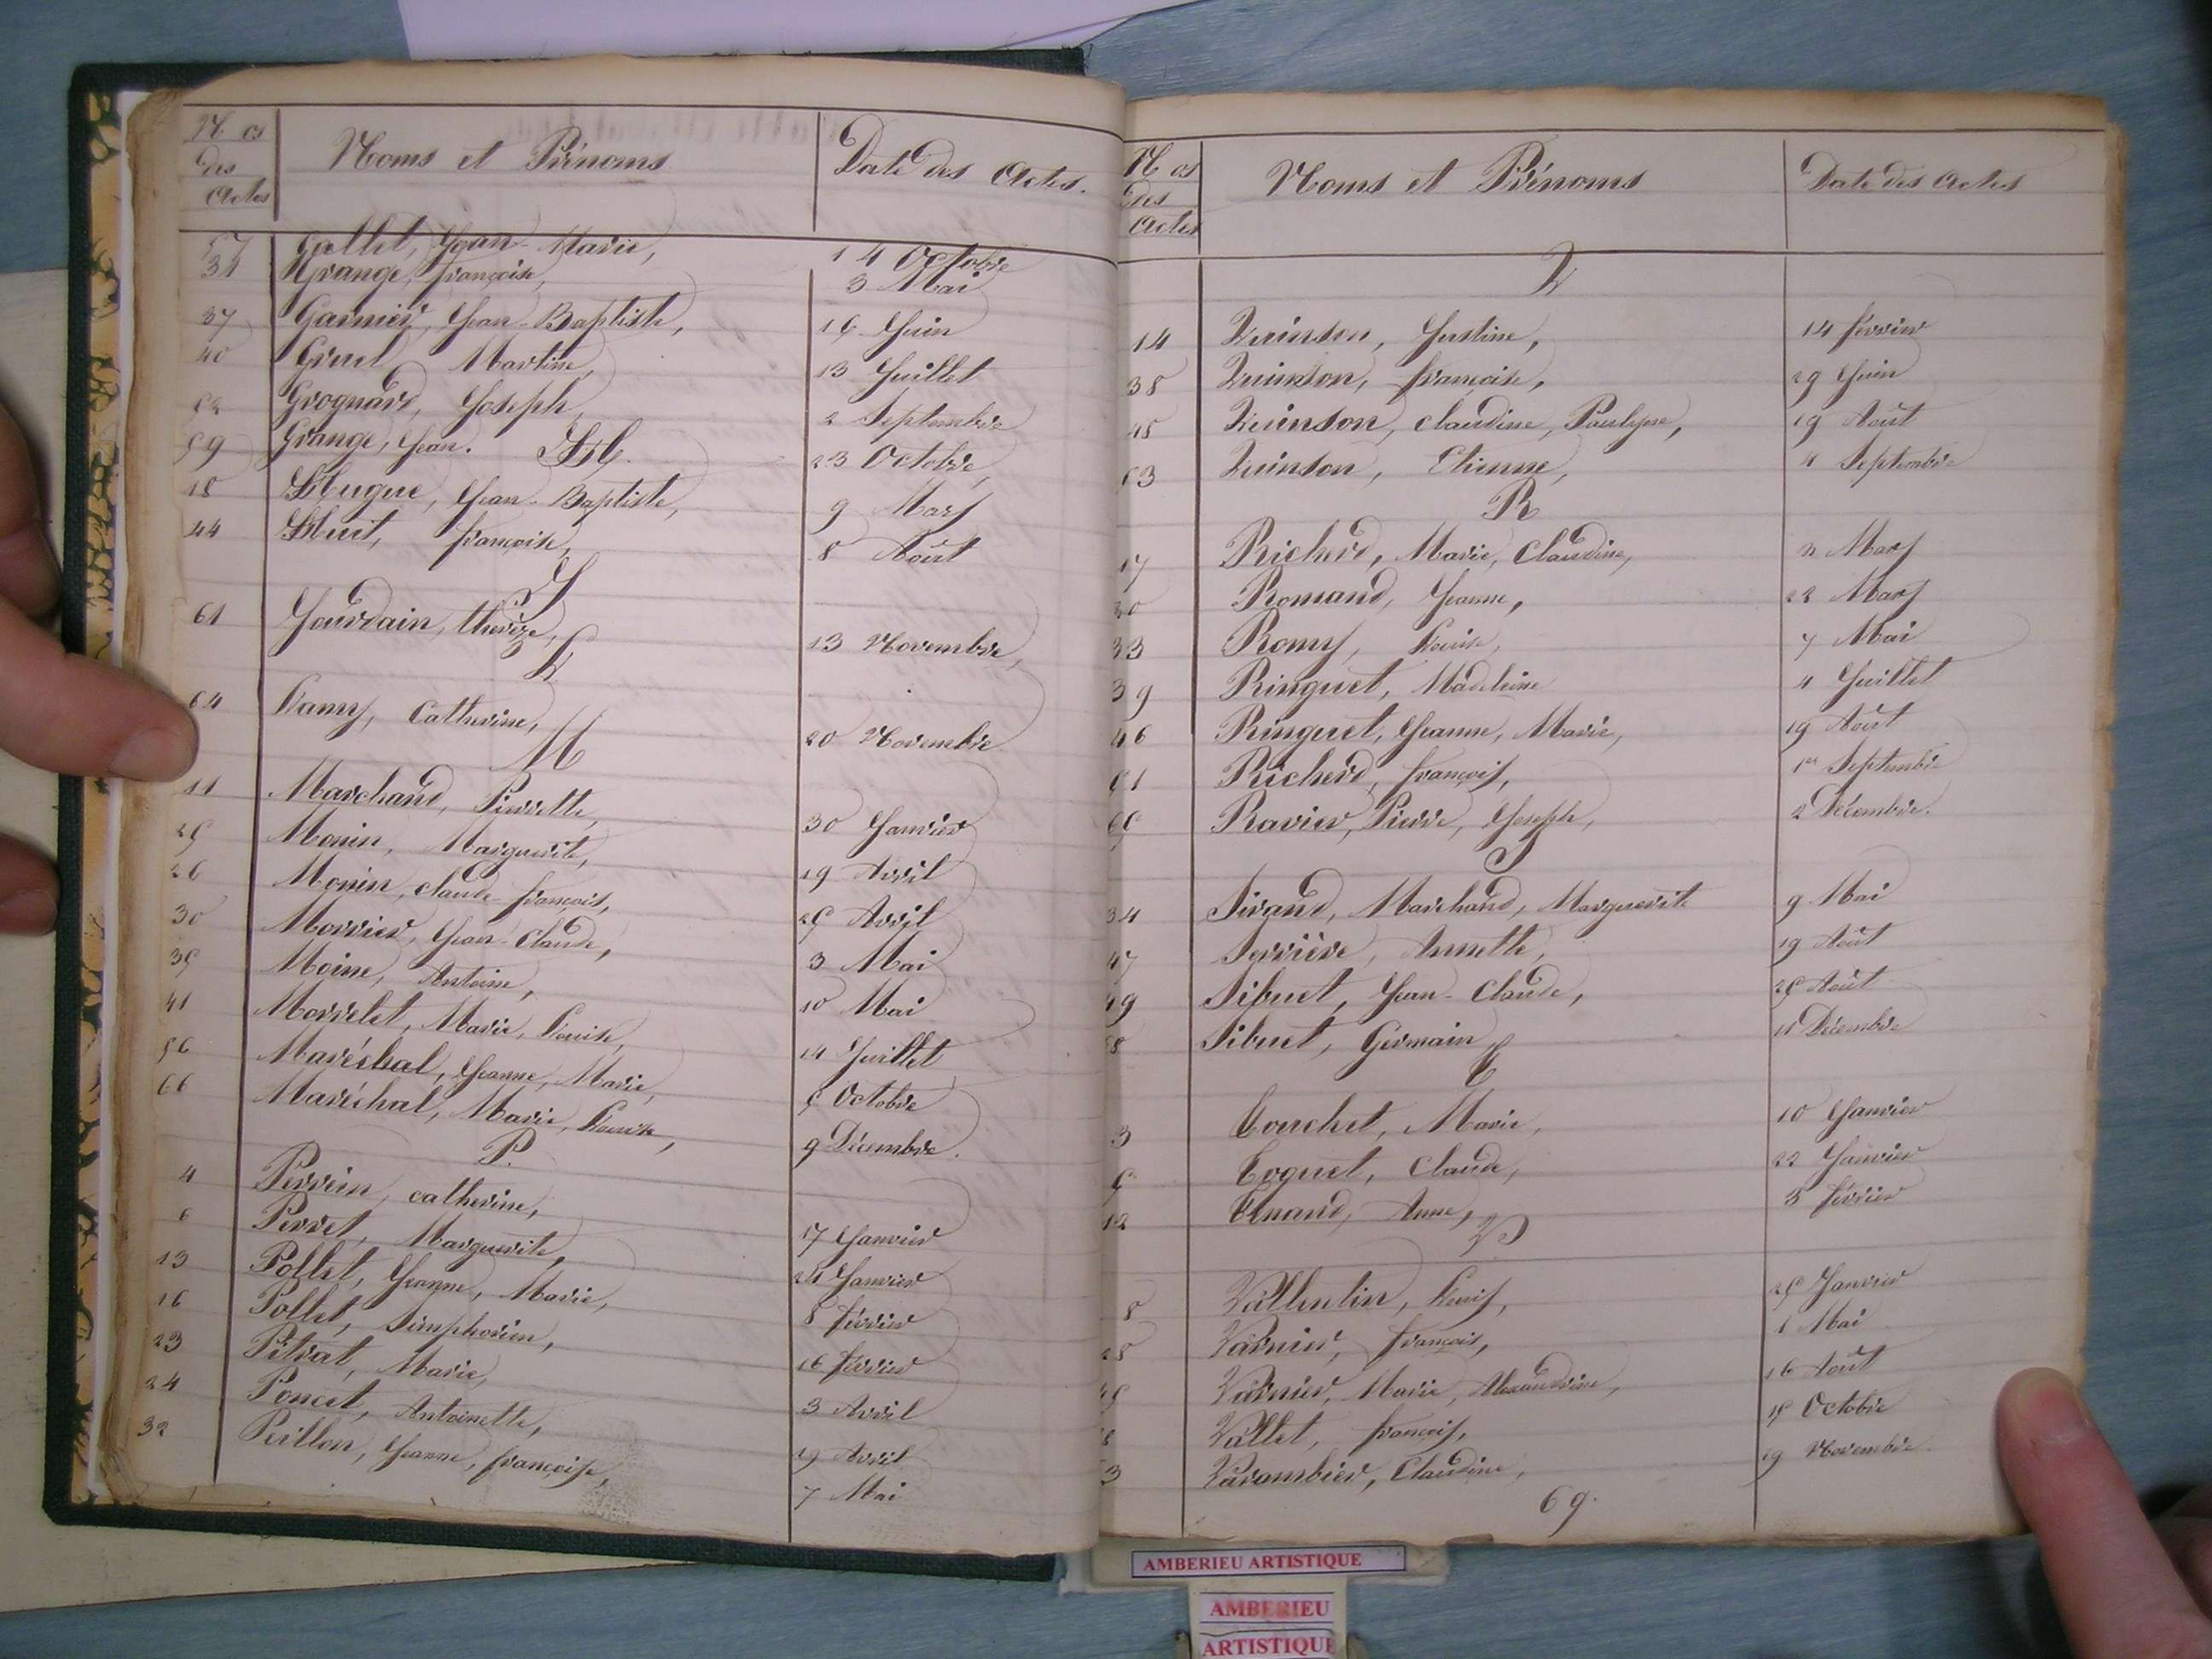 Nos des Actes Noms et Prénoms Date des Actes.
57 Gallet, Jean-Marie, 14 Octobre
31 Grange, françoise, 3 Mai
37 Garnier, Jean-Baptiste, 16 Juin
40 Gruel Martine, 13 Juillet
52 Grognard, Joseph, 2 Septembre
59 Grange, Jean. 23 Octobre,
H.
18 Hugue, Jean-Baptiste, 9 Mars
44 Huit, françoise, 8 Août
J
61 Jourdain, thérèze, 13 Novembre,
L
64 Lamy, Catherine, 20 Novembre
M
11 Marchand, Pierrette, 30 Janvier
25 Monin, Marguerite, 19 Avril
26 Monin, claude-françois, 25 Avril
30 Morrier, Jean-Claude, 3 Mai
35 Moine, Antoine, 10 Mai
41 Morrelet, Marie, Louise, 14 Juillet
56 Maréchal, Jeanne, Marie, 5 Octobre
66 Maréchal, Marie, Louise, 9 Décembre.
P.
4 Perrin, catherine, 17 Janvier
6 Perret, Marguerite, 24 Janvier
13 Pollet, Jeanne, Marie, 8 février
16 Pollet, Simphorien, 16 février
23 Pitrat, Marie, 3 Avril
24 Poncet, Antoinette, 19 Avril
32 Peillon, Jeanne, françoise, 7 Mai
Nos des Actes Noms et Prénoms Date des Actes
Q
14 Quinson, Justine, 14 février
38 Quinson, françoise, 29 Juin
45 Quinson, claudine, Paulyne, 19 Août
53 Quinson, Etienne, 4 Septembre
R
17 Richerd, Marie, Claudine, 2 Mars
20 Romand, Jeanne, 22 Mars
33 Romy, Louise, 7 Mai
39 Ringuet, Madeleine 4 Juillet
46 Ringuet, Jeanne, Marie, 19 Août
51 Richerd, françois, 1er Septembre
65 Ravier, Pierre, Joseph, 2 Décembre.
S
34 Sirand, Marchand, Marguerite 9 Mai
47 Serrière, Annette, 19 Août
49 Sibuet, Jean-Claude, 25 Août
68 Sibuet, Germain, 11 Décembre
T
3 Touchet, Marie, 10 Janvier
5 Toquet, Claude, 22 Janvier
12 Tenand, Anne, 5 février
V
8 Vallentin, Louis, 25 Janvier
28 Varnier, françois, 1 Mai
Varnier, Marie, Alexandrine, 16 Août
58 Vallet, françois, 15 Octobre
63 Varambier, Claudine, 19 Novembre.
69.
AMBERIEU ARTISTIQUE
AMBERIEU
ARTISTIQUE